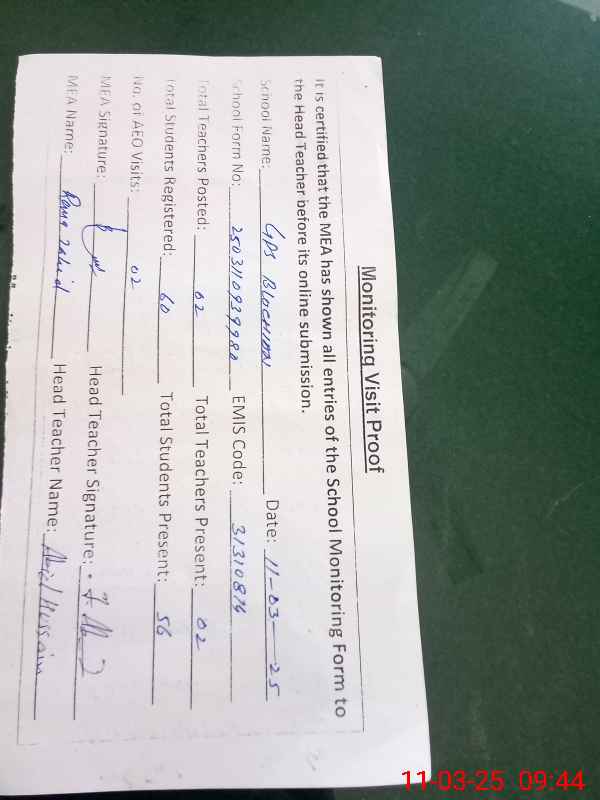 Monitoring Visit Proof
It is certified that the MEA has shown all entries of the School Monitoring Form to
the Head Teacher before its online submission.
School Name: GPS Date: 11-03-25
School Form No: EMIS Code: 31310874
Total Teachers Posted: 02 Total Teachers Present: 02
Total Students Registered: 60 Total Students Present: 56
No. of AEO Visits: 02
MEA Signature: Head Teacher Signature:
MEA Name: Rana Zahid Head Teacher Name: Hussain
11-03-25 09:44